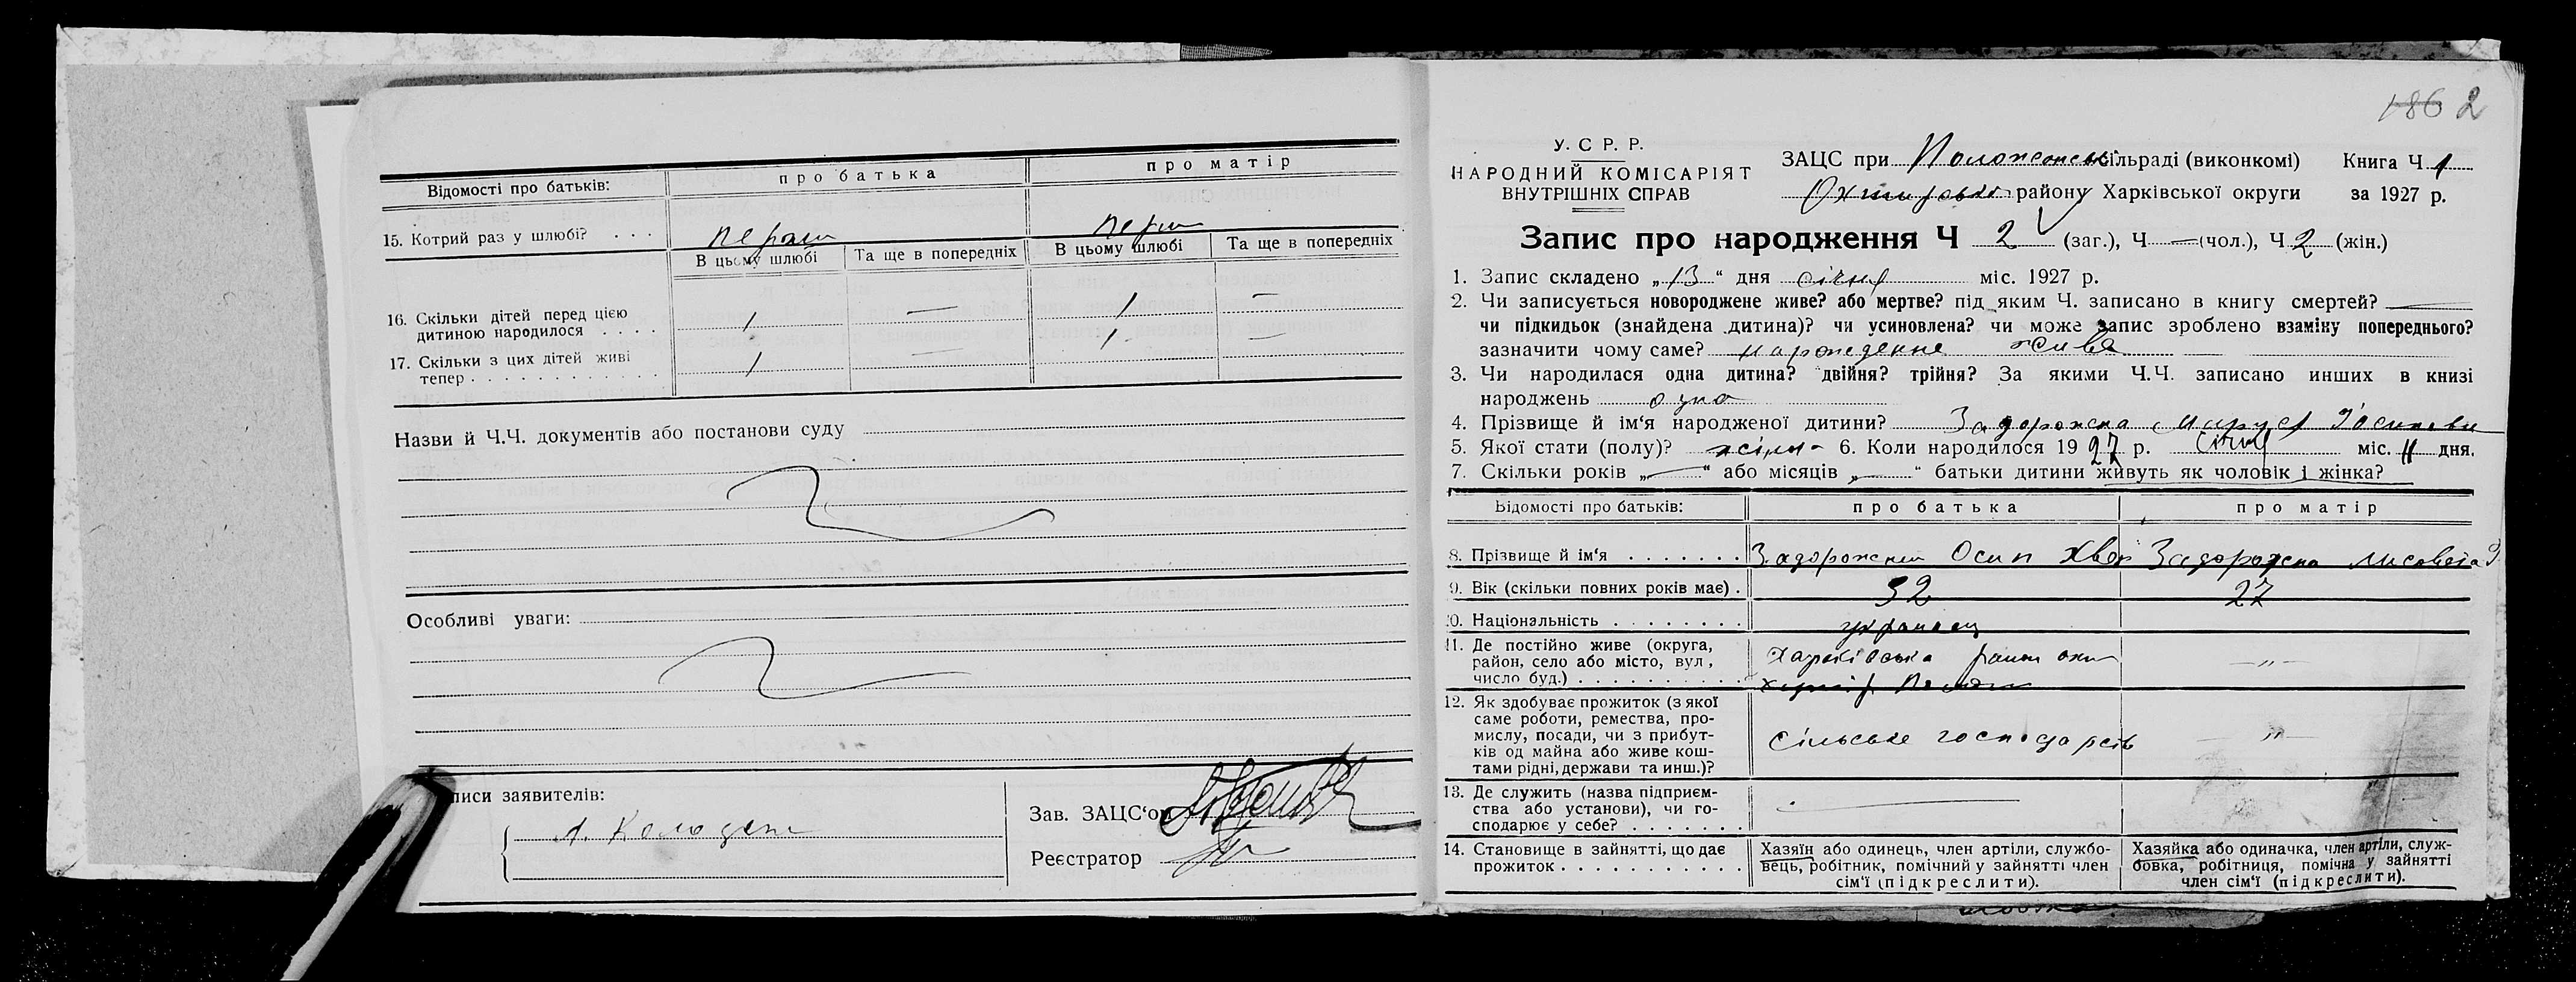 Відомості про батьків: про батька про матір
15. Котрий раз у шлюбі? . . . перши перш
В цьому шлюбі Та ще в попередніх В цьому шлюбі Та ще в попередніх
16. Скільки дітей перед цією
дитиною народилося . . . . 1 — 1 —
17. Скільки з цих дітей живі
тепер . . . . . . . . . . . . . 1 — 1 —
Назви й Ч.Ч. документів або постанови суду
Особливі уваги:
писи заявителів:
Зав. ЗАЦС'ом
Реєстратор
186 2
У. С Р. Р.
НАРОДНИЙ КОМІСАРІЯТ
ВНУТРІШНІХ СПРАВ
ЗАЦС при сільраді (виконкомі) Книга Ч 1
району Харківської округи за 1927 р.
Запис про народження Ч 2 (заг.), Ч — (чол.), Ч 2 (жін.)
1. Запис складено „13" дня січня міс. 1927 р.
2. Чи записується новороджене живе? або мертве? під яким Ч. записано в книгу смертей? —
чи підкидьок (знайдена дитина)? чи усиновлена? чи може запис зроблено взаміну попереднього?
зазначити чому саме? народження жива —
3. Чи народилася одна дитина? двійня? трійня? За якими Ч.Ч. записано инших в книзі
народжень одна
4. Прізвище й ім'я народженої дитини? Задорожна Маруся Йосипови
5. Якої стати (полу)? жіно- 6. Коли народилося 1927 р. січня міс. 11 дня.
7. Скільки років „—" або місяців „—" батьки дитини живуть як чоловік і жінка?
Відомості про батьків: про батька про матір
8. Прізвище й ім'я . . . . . . . Задорожний Осип Хвед Задорожна Лисовета
9. Вік (скільки повних років має) . 32 27
10. Національність . . . . . . . . українец
11. Де постійно живе (округа,
район, село або місто, вул,
число буд.) . . . . . . . . . . Харківська — " —
12. Як здобуває прожиток (з якої
саме роботи, ремества, про-
мислу, посади, чи з прибут-
ків од майна або живе кош-
тами рідні, держави та инш.)? сільське господарств — " —
13. Де служить (назва підприєм-
ства або установи), чи го-
сподарює у себе? . . . . . . . —
14. Становище в зайнятті, що дає
прожиток . . . . . . . . . . .
Хазяїн або одинець, член артіли, службо-
вець, робітник, помічний у зайнятті член
сім'ї (підкреслити).
Хазяйка або одиначка, член артіли, служ-
бовка, робітниця, помічна у зайнятті
член сім'ї (підкреслити).